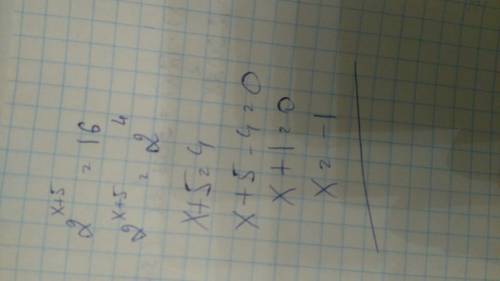 2^{x+5} = 16
2^{x+5} = 2^4
x+5=4
x+5-4=0
x+1=0
x=-1